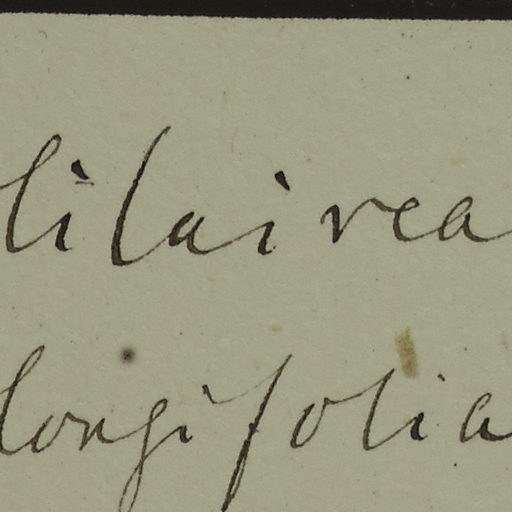 lilairea
longifolia